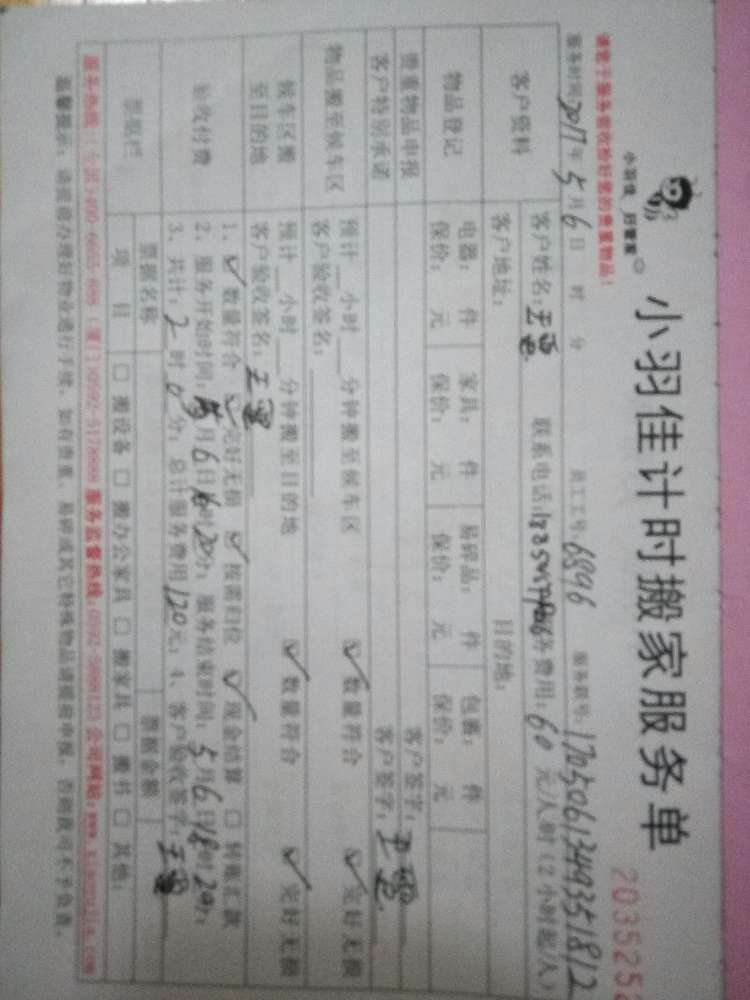 请您于服务前收拾好您的贵重物品!
小羽佳、好管家
小羽佳计时搬家服务单
2035252
服务时间2017年5月6日 时 分 员工工号:6896 服务款号:17050613449351812
客户资料
客户姓名:王 联系电话: 服务费用:60元/人时(2小时起/人)
客户地址: 目的地:
物品登记
电器: 件 家具: 件 易碎品: 件 包裹: 件
保价: 元 保价: 元 保价: 元 保价: 元
贵重物品申报 客户签字:王
客户特别承诺 客户签字:王
物品搬至候车区
预计__小时__分钟搬至候车区 ✓数量符合 ✓完好无损
客户验收签名:
候车区搬至目的地
预计__小时__分钟搬至目的地 ✓数量符合 ✓完好无损
客户验收签名:王
验收付费
1、✓数量符合 ✓完好无损 ✓按需归位 ✓现金结算 □转账汇款
2、服务开始时间:5月6日16时20分; 服务结束时间:5月6日18时20分;
3、共计:2时0分; 总计服务费用120元; 4、客户验收签字:王
票据栏
票据名称 票据金额
项目 □搬设备 □搬办公家具 □搬家具 □搬书 □其他:
服务热线:(全国)400-6655-888 (厦门)0592-5178888 服务监督热线:0592-5088123 公司网站:www.xiaoyujia.com
温馨提示:请提前办理好物业进行手续,如有贵重、易碎或其它特殊物品请提前申报,否则我司不予负责。